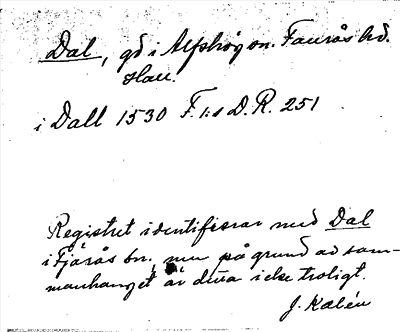 Dal, gd i Alfshög sn. Faurås hd.
Hall.
i Dall 1530 F. 1:s D.R. 251
Registret identifierar med Dal
i Fjärås sn., men på grund av sam-
manhanget är detta icke troligt.
J. Kalén